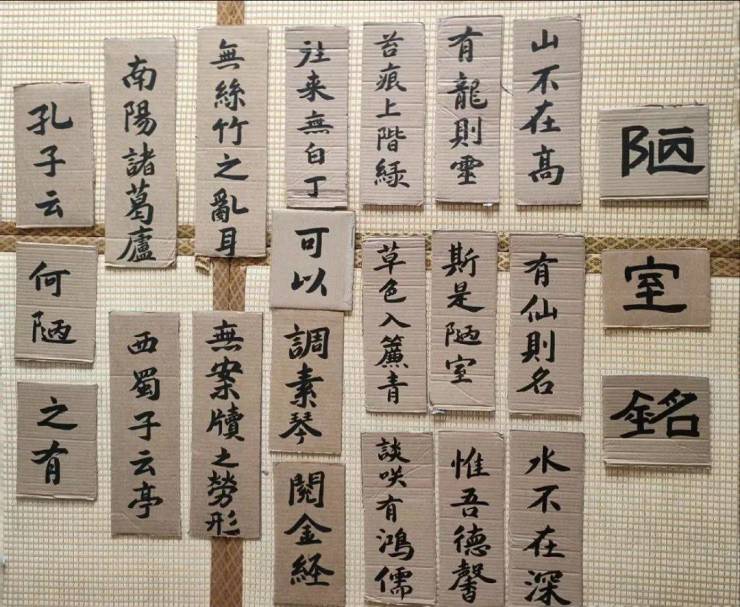 陋
室
銘
山不在高
有仙則名
水不在深
有龍則靈
斯是陋室
惟吾德馨
苔痕上階緑
草色入簾青
談咲有鴻儒
往来無白丁
可以
調素琴
閲金経
無絲竹之亂耳
無案牘之勞形
南陽諸葛廬
西蜀子云亭
孔子云
何陋
之有